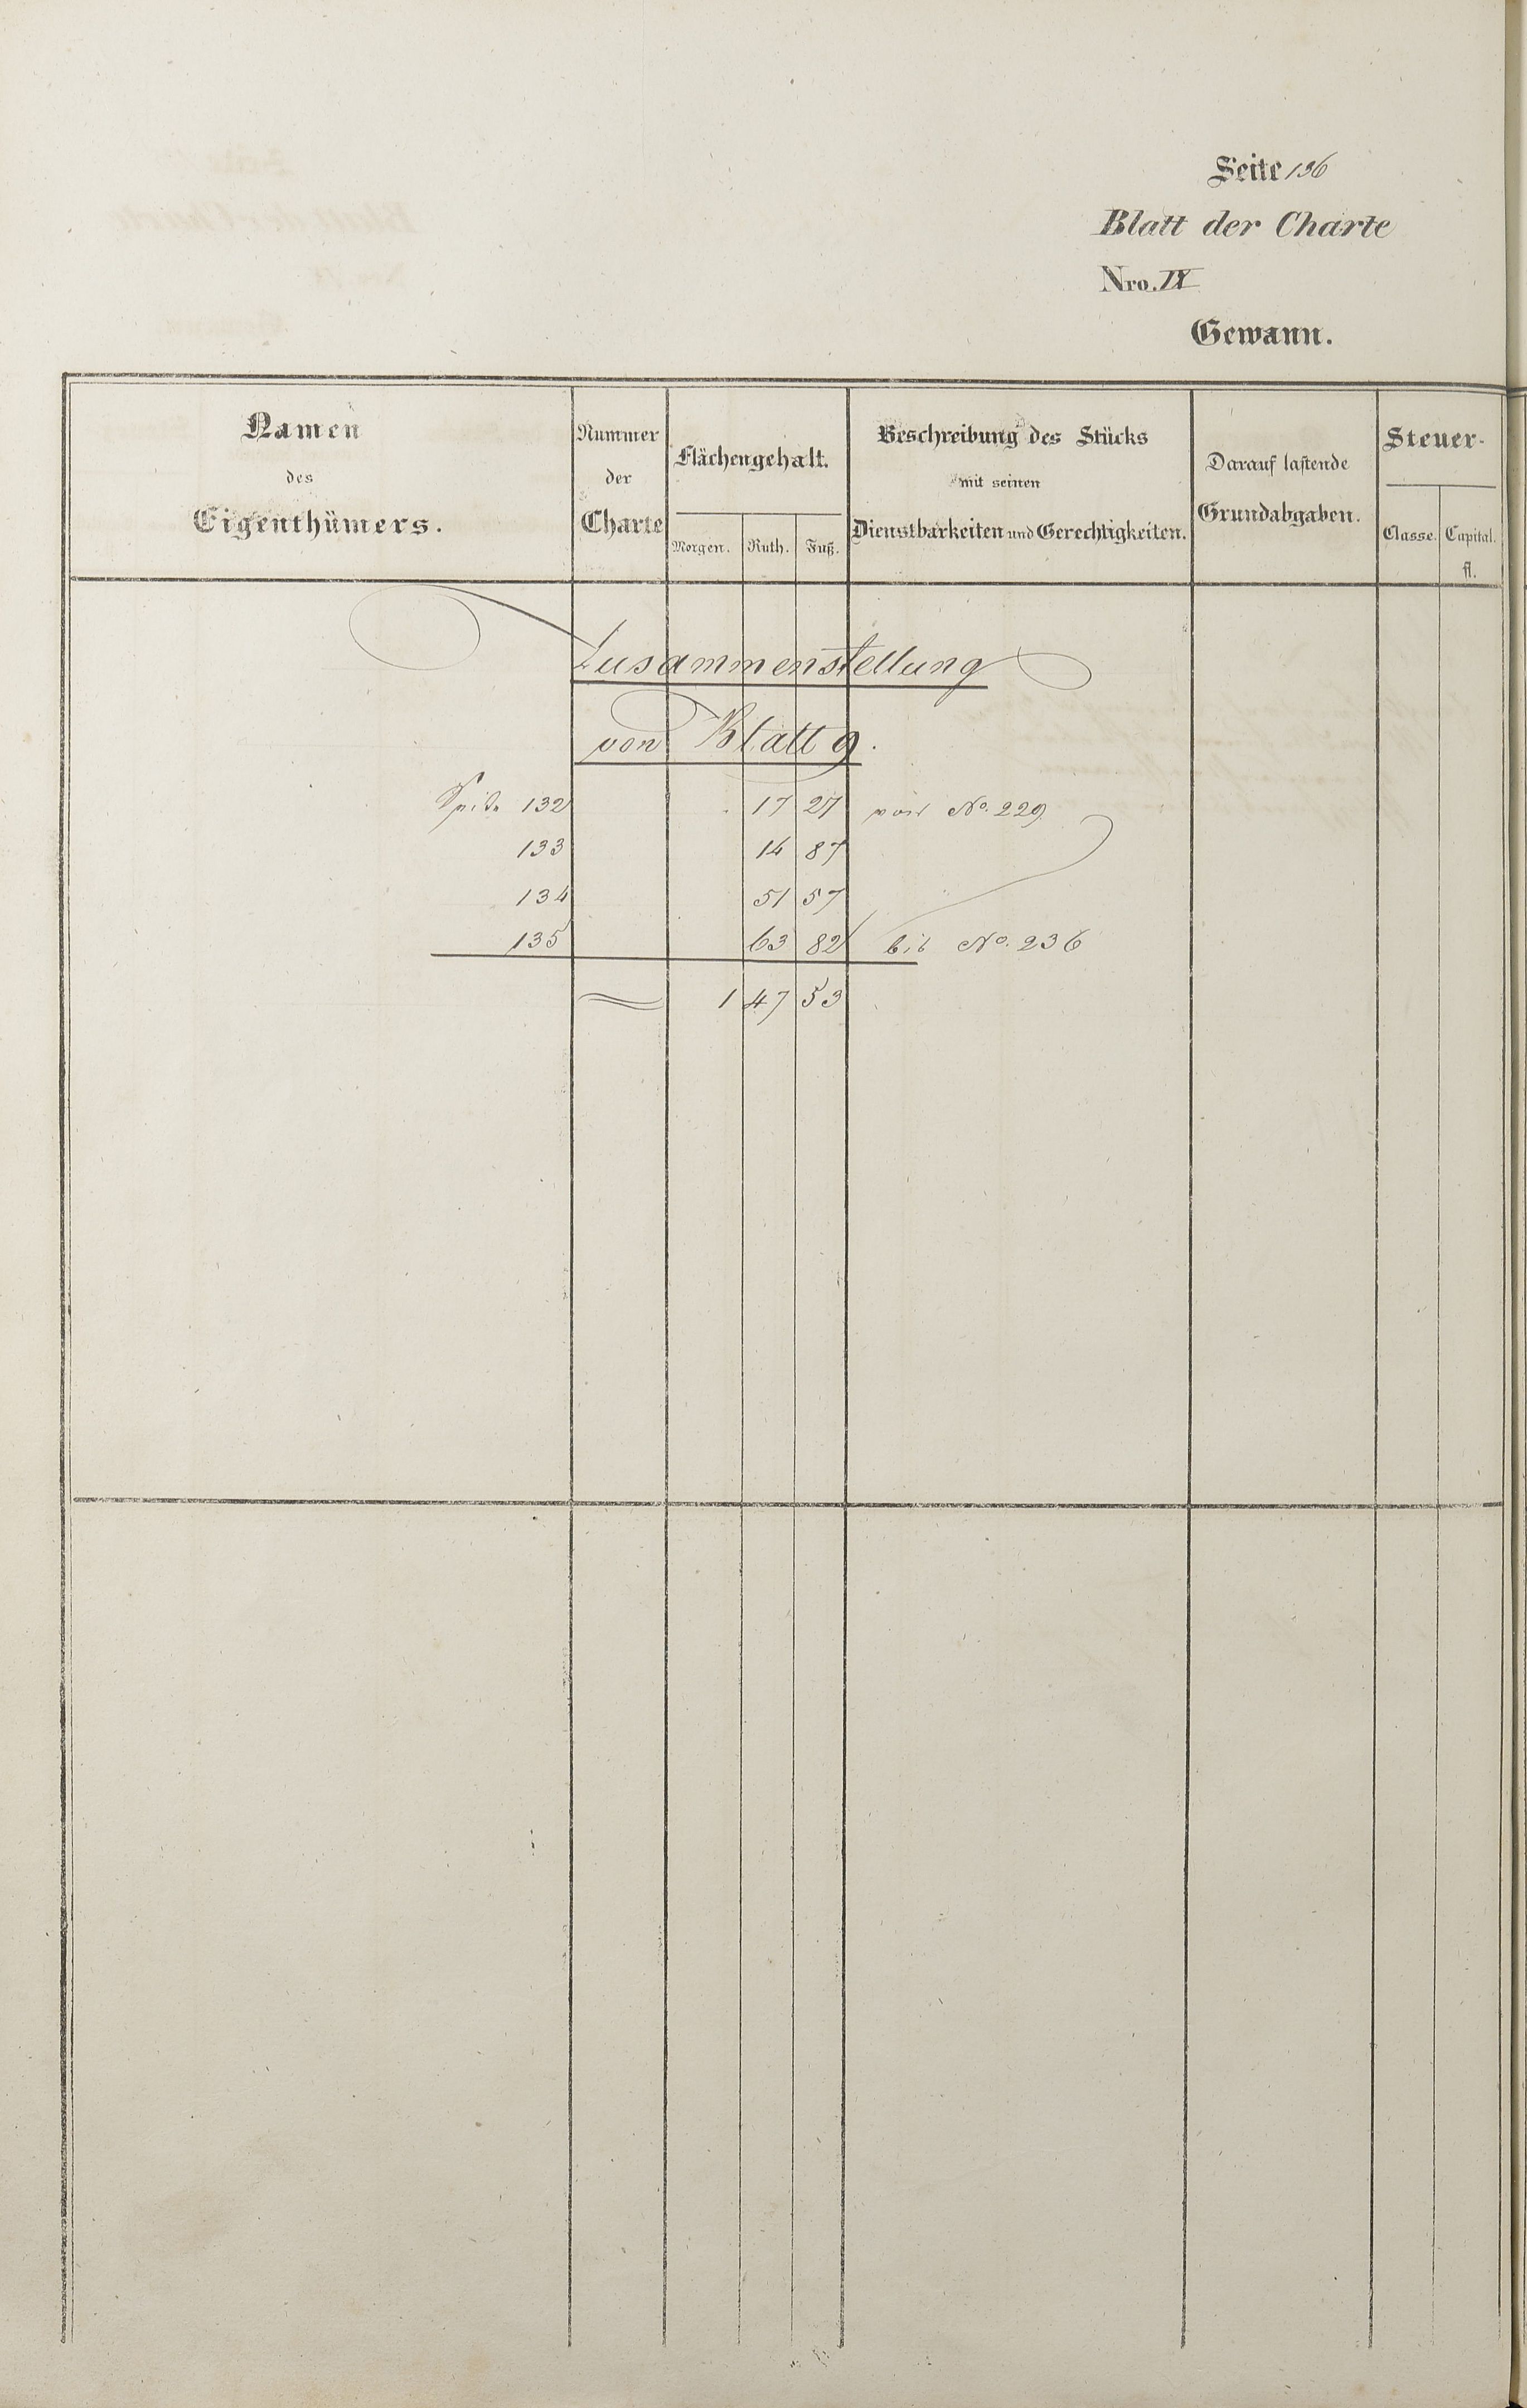 Seite 136
Blatt der Charte
Nro. IX
Gewann.
Namen des Eigenthümers.
Nummer der Charte
Flächengehalt.
Morgen. Ruth. Fuß.
Beschreibung des Stücks mit seinen Dienstbarkeiten und Gerechtigkeiten.
Darauf lastende Grundabgaben.
Steuer-
Classe. Capital. fl.
Zusammenstellung
von Blatt 9.
Seite 132 17 27 von No. 229
133 14 87
134 51 57
135 63 82 bis No. 236
1 47 53